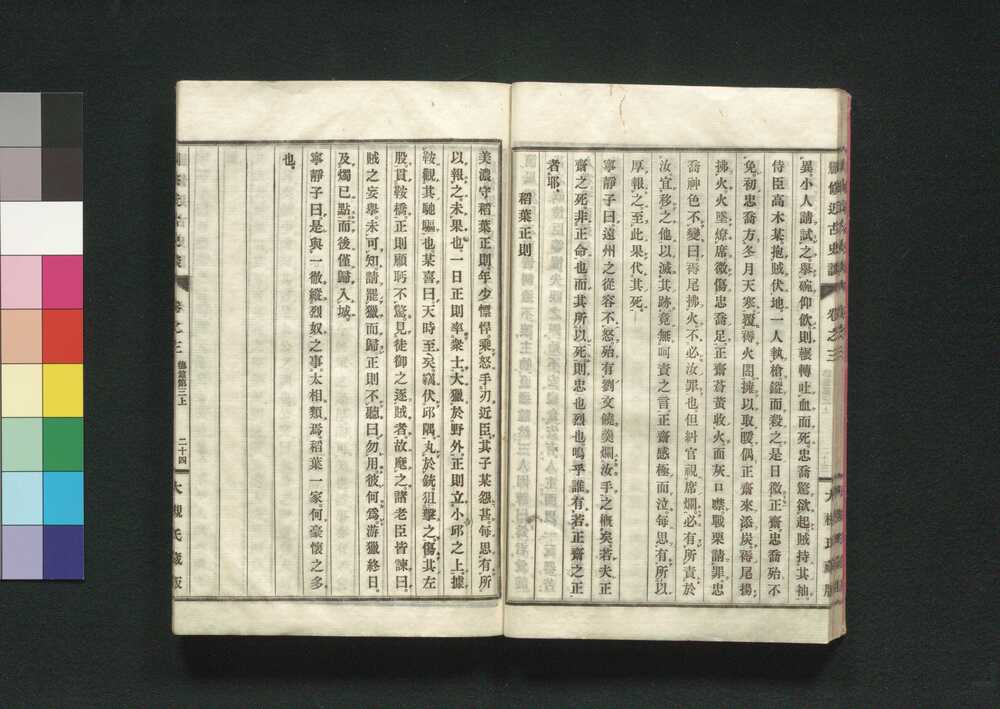 異小人請試之擧碗仰飮則輾轉吐血而死忠喬驚欲起賊持其袖
侍臣高木某抱賊伏地一人執槍鏦而殺之是日微正齋忠喬殆不
免初忠喬方冬月天寒覆褥火閤擁以取暖偶正齋來添炭褥尾揚
拂火火墜燎席微傷忠喬足正齋蒼黃收火面灰口噤戰栗請罪忠
喬神色不變曰褥尾拂火不必汝罪也但糾官視席爛必有所責於
汝宜移之他以滅其跡竟無呵責之言正齋感極而泣每思有所以
厚報之至此果代其死
寧靜子曰遠州之從容不怒殆有劉文饒羹爛汝手之槪矣若夫正
齋之死非正命也而其所以死則忠也烈也嗚乎誰有若正齋之正
者耶
稻葉正則
美濃守稻葉正則年少慓悍乘怒手刃近臣其子某怨甚每思有所
以報之未果也一日正則率衆士大獵於野外正則立小邱之上據
鞍觀其馳驅也某喜曰天時至矣竊伏邱隅丸於銃狙擊之傷其左
股貫鞍橋正則顧眄不驚見徒御之逐賊者故麾之諸老臣皆諫曰
賊之妄擧未可知請罷獵而歸正則不聽曰勿用彼何爲游獵終日
及燭已點而後僅歸入城
寧靜子曰是與一徹縱烈奴之事太相類焉稻葉一家何豪懷之多
也
卷之三 德量第三上 二十四 大槻氏藏版